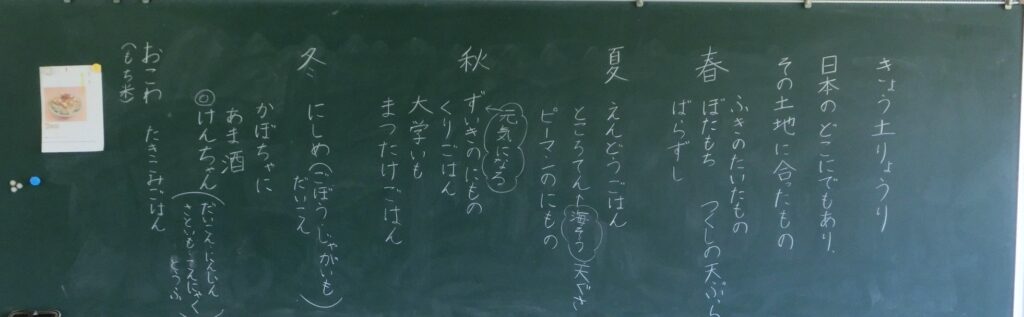 きょう土りょうり
日本のどこにでもあり、
その土地に合ったもの
春
ふきのたいたもの
ぼたもち つくしの天ぷら
ばらずし
夏
えんどうごはん
ところてん 海そう 天ぐさ
ピーマンのにもの
秋
元気になる
ずいきのにもの
くりごはん
大学いも
まつたけごはん
冬
にしめ(ごぼう じゃがいも
だいこん )
かぼちゃに
あま酒
◎けんちゃん
(だいこん にんじん
さといも こんにゃく
とうふ )
おこわ たきこみごはん
(もち米)